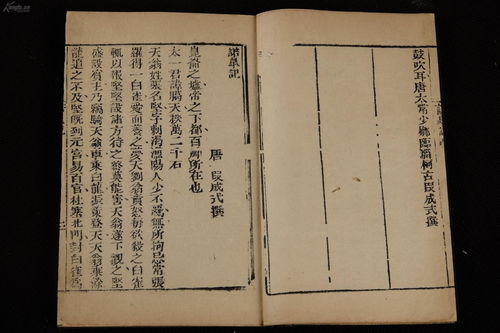 鼓吹耳唐太常少鄉臨淄柯古段成式撰
諾皋記
唐 段成式撰
崑崙之墟帝之下都百神所在也
太一君諱騰天秩萬二千石
天翁姓張名堅字刺渴漁陽人少不羈無所拘忌常張
羅得一白雀愛而養之夢天劉翁責怒每欲殺之白雀
輒以報堅堅設諸方待之終莫能害天翁遂下觀之堅
盛設賓主乃竊騎天翁車乘白龍振策登天天翁乘餘
龍追之不及堅既到元宮易百官杜塞北門封白雀為